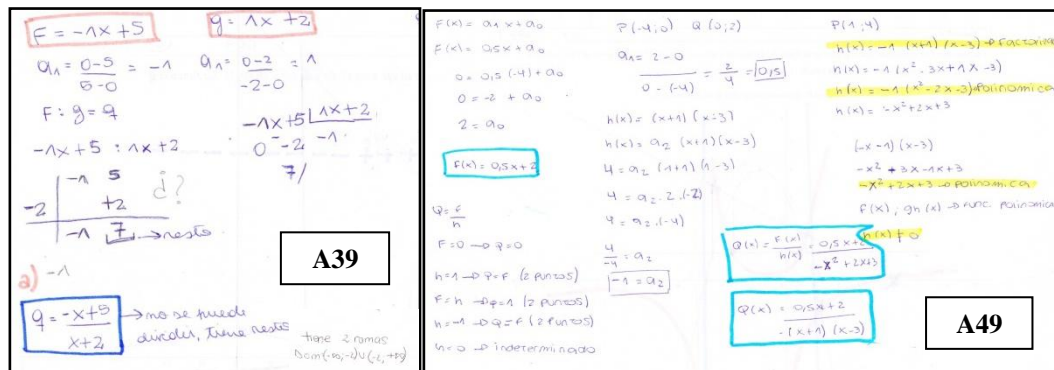 F = -1x+5
g = 1x +2
a₁ = 0-5 / 5-0 = -1
a₁ = 0-2 / -2-0 = 1
F : g = q
-1x+5 : 1x+2
-1x+5 | 1x+2
0 -2 -1
7/
-1 5 ¿?
-2 +2
-1 7 → resto
a) -1
q = -x+5 / x+2 → no se puede
dividir, tiene resto
tiene 2 ramas
Dom(-∞;-2)∪(-2,+∞)
A39
F(x) = a₁x+a₀
F(x) = 0,5x+a₀
0 = 0,5(-4)+a₀
0 = -2 + a₀
2 = a₀
F(x) = 0,5x+2
Q = F / h
F=0 → Q=0
h=1 → Q=F (2 puntos)
F=h → Q=1 (2 puntos)
h=-1 → Q=F (2 puntos)
h=0 → indeterminado
P(-4;0) Q(0;2)
a₁= 2-0 / 0-(-4) = 2/4 = 0,5
h(x) = (x+1)(x-3)
h(x) = a₂(x+1)(x-3)
4 = a₂(1+1)(1-3)
4 = a₂.2.(-2)
4 = a₂.(-4)
4/-4 = a₂
-1 = a₂
P(1;4)
h(x) = -1(x+1)(x-3) → Factorizada
h(x) = -1(x²-3x+1x-3)
h(x) = -1(x²-2x-3) → Polinomica
h(x) = -x²+2x+3
(-x-1)(x-3)
-x²+3x-1x+3
-x²+2x+3 → polinomica
F(x), gh(x) → Func. Polinomica
h(x) ≠ 0
Q(x) = F(x) / h(x) = 0,5x+2 / -x²+2x+3
Q(x) = 0,5x+2 / -(x+1)(x-3)
A49